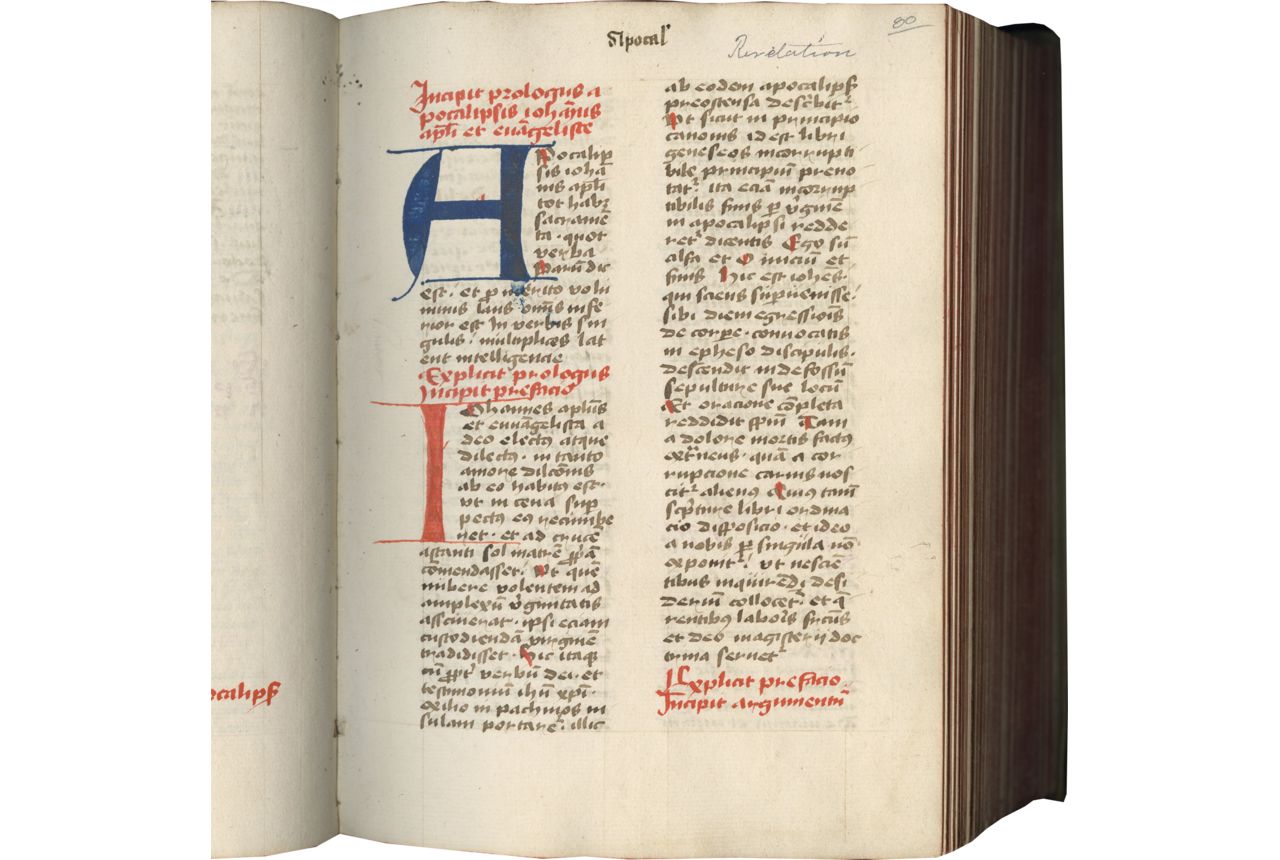 Apocal
Revelation
80
Incipit prologus a
pocalipsis ioha̅nis
apl̅i et eua̅geliste
Apocalip
sis ioha̅
nis apl̅i
tot habꝫ
sacrame̅
ta · quot
verba
Paru̅ dic
est · et ꝑ merito volu
minis laus om̅is infe
rior est In verbis sin
gulis · multiplices lat
ent intelligencie
Explicit prologus
Incipit prefacio
Iohannes apl̅us
et euuangelista a
deo electꝰ atque
dilectꝰ · in tanto
amore dilc̅onis
ab eo habitꝰ est ·
vt in cena sup
pectꝰ eꝰ recumbe
ret · et ad cruce̅
astanti sol matre̅ ꝓpa̅
co̅mendasset · Vt que̅
nubere volentem ad
amplexu̅ v̾ginitatis
asciuerat · ipsi eciam
custodienda̅ virgine̅
tradidisset · Hic itaqꝫ
cu̅ ꝓpt̾ verbu̅ dei · et
testimoniu̅ ih̅u xp̅i ·
exilio in pathmos in
sulam portaret̾ · illic
ab eodem apocalips̅
preostensa desc̾bit̾
Vt sicut in principio
canonis id est libri
geneseos incorrupti
bile principiu̅ preno
tat̾ · ita ecia̅ incorrup
tibilis finis ꝑ v̾gine̅
in apocalipsi redde
ret̾ dicentis Ego su̅
alfa et O iniciu̅ et
finis Hic est ioh̅es ·
qui sciens superuenisse ·
sibi diem egressio̅is
de corꝑe · conuocatis
in epheso discipulis ·
descendit in defossu̅
sepulture sue locu̅
Et oracione co̅pleta
reddidit sp̅m Tam
a dolore mortis factꝰ
ext̾neus · qua̅ a cor
rupcione carnis nos
cit̾ alienꝰ Cuiꝰ tam̅
sc̾pture libri ordina
cio disposicio · et ideo
a nobis ꝑ singula no̅
exponit̾ · vt nescie̅
tibus inquirendi desi
deriu̅ collocet̾ · et q̅
rentibꝰ labor̾s fructꝰ
et deo magisterij doc
trina seruet̾
Explicit prefacio
Incipit argumentu̅
ocalips̅